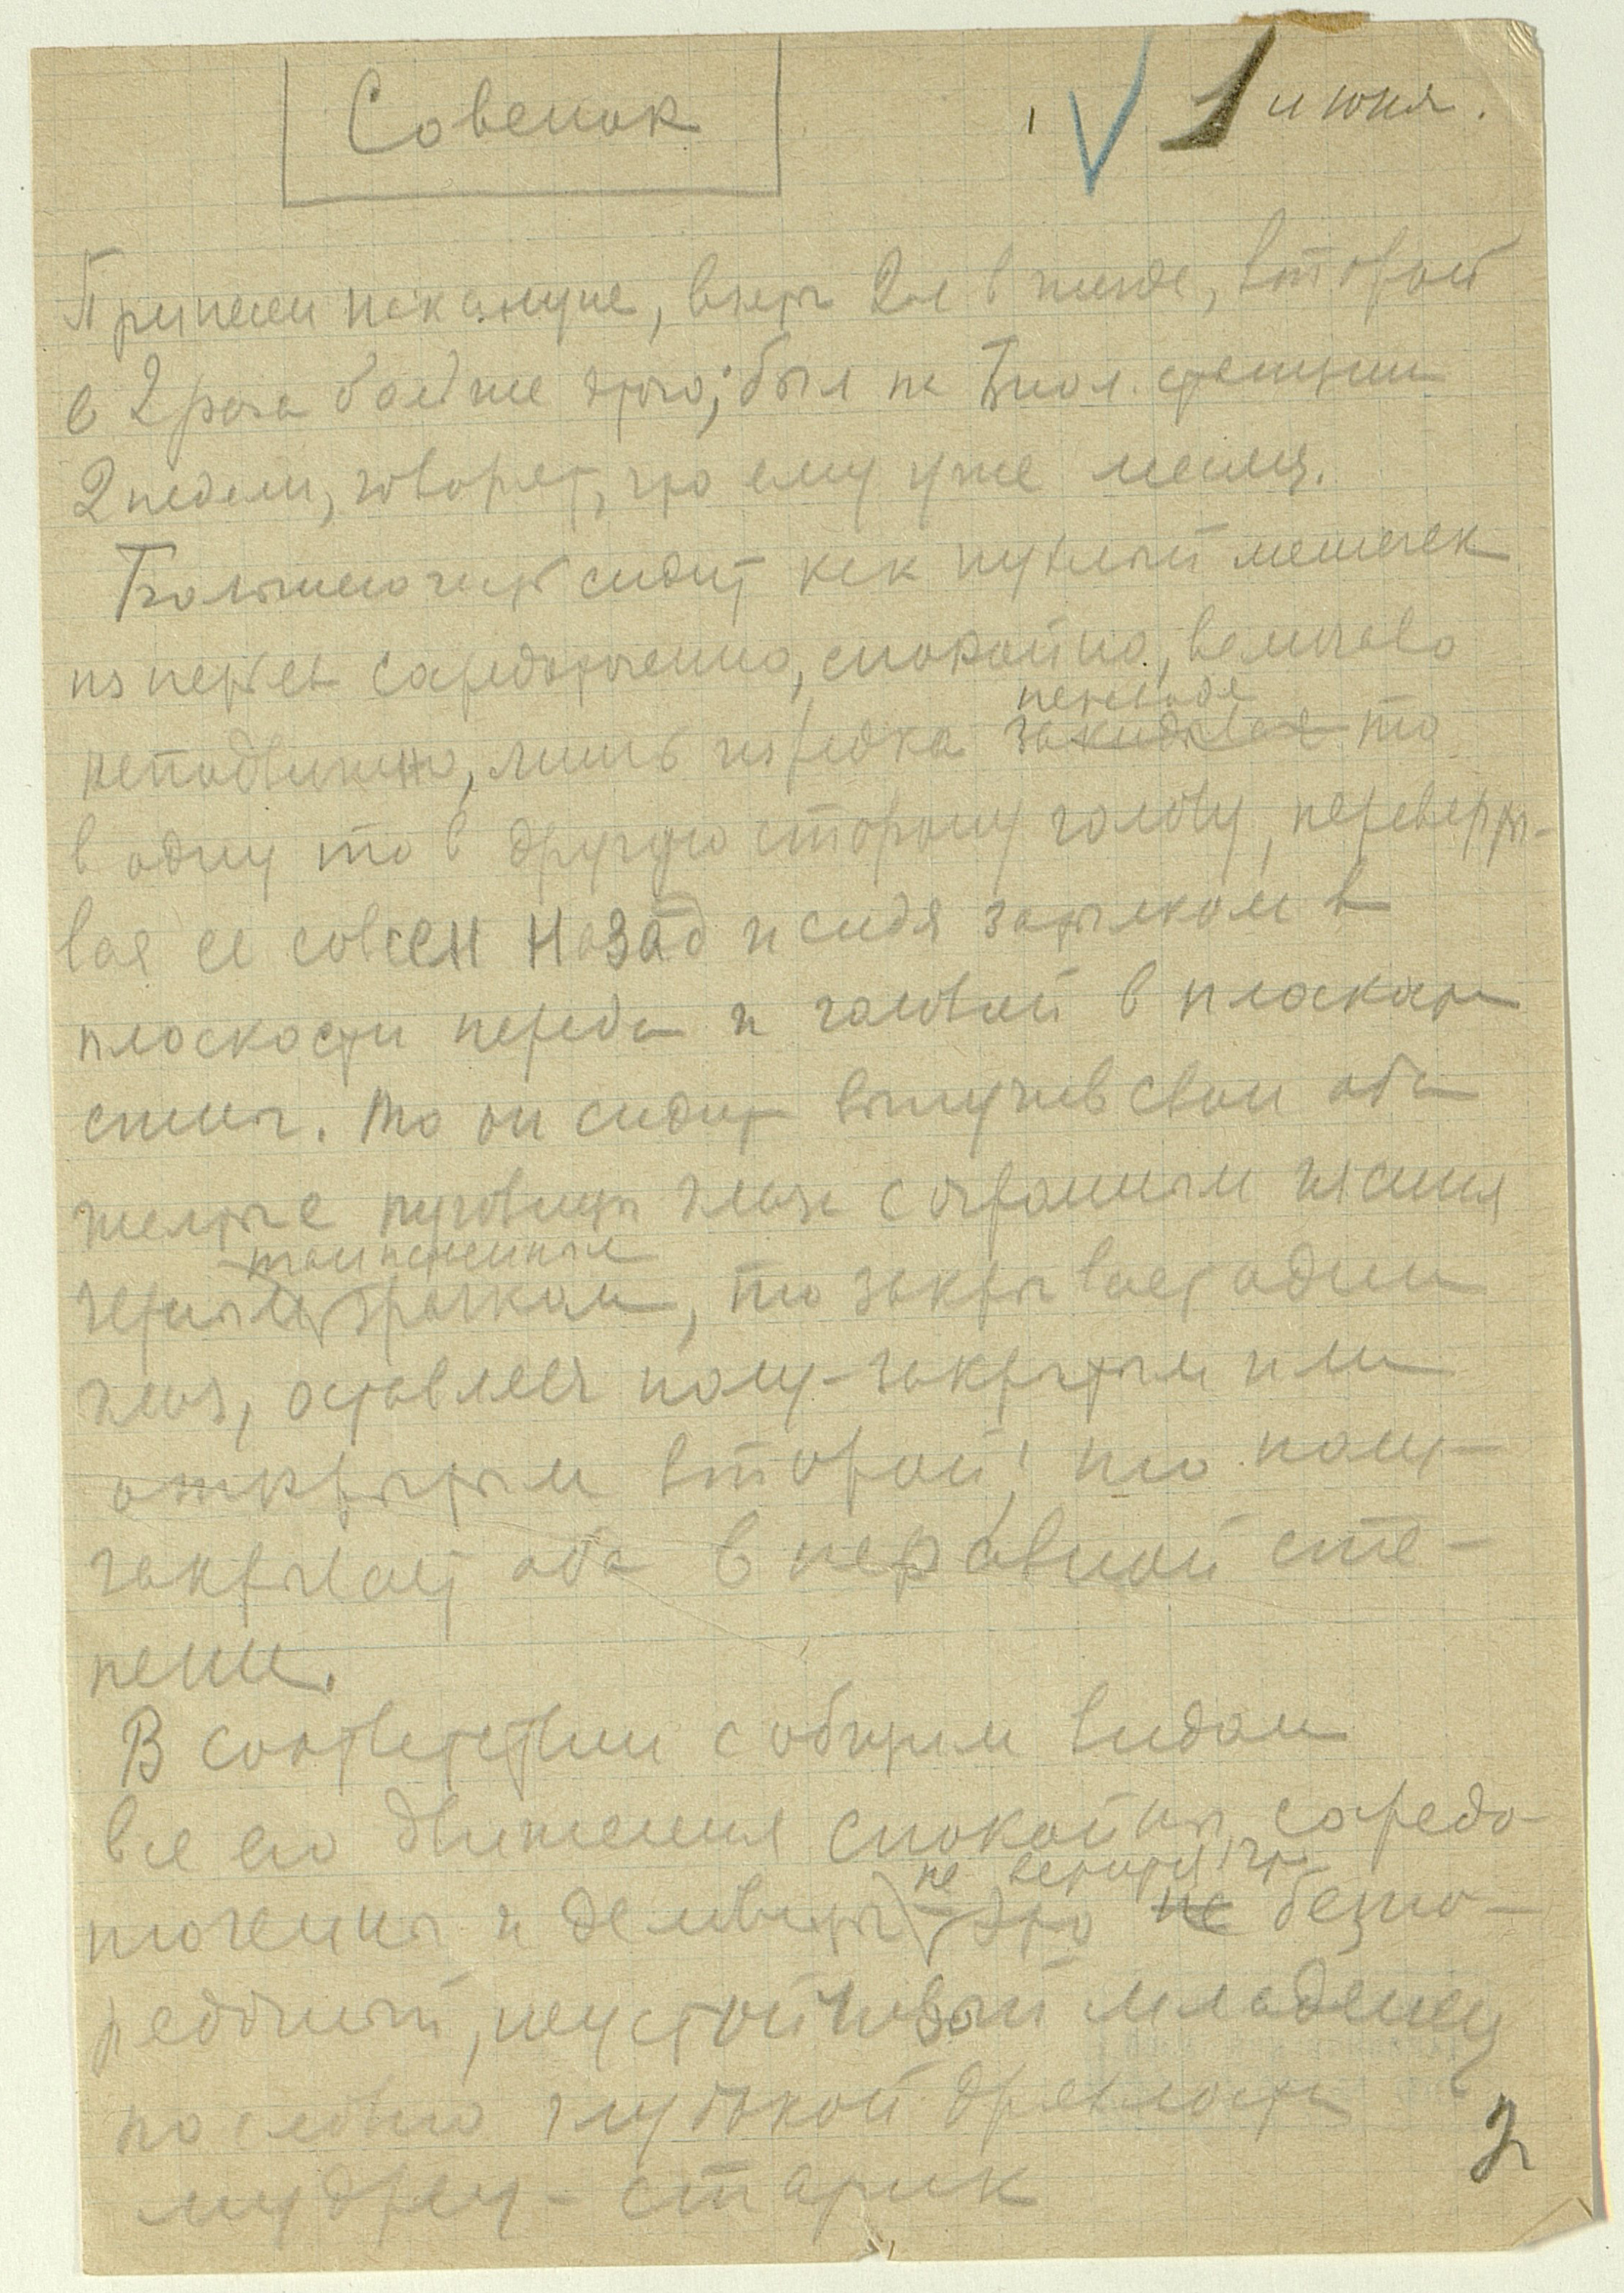 Совенок
1 июня.
Принесли накануне, взяты 2ое в гнезде, второй
в 2 раза больше этого; был на Биол. станции
2 недели, говорят, что ему уже месяц.
Большею частью сидит как пухлый мешочек
из перьев сосредоточенно, спокойно, величаво
неподвижно, лишь изредка то
в одну то в другую сторону голову, переверты-
вая ее совсем назад и сидя затылком в
плоскости переда и головой в плоскости
спины. То он сидит выпучив свои оба
желтые пуговицы глаза с огромным
черным зрачком, то закрывает один
глаз, оставляя полу-закрытым или
открытым второй; то полу-
закрывает оба в неравной сте-
пени.
В соответствии с общим видом
все его движения спокойны, сосредо-
точенны и деловиты - не это не безпо-
рядочный, неустойчивый младенец
а словно глубокой древности
мудрец - старик
2